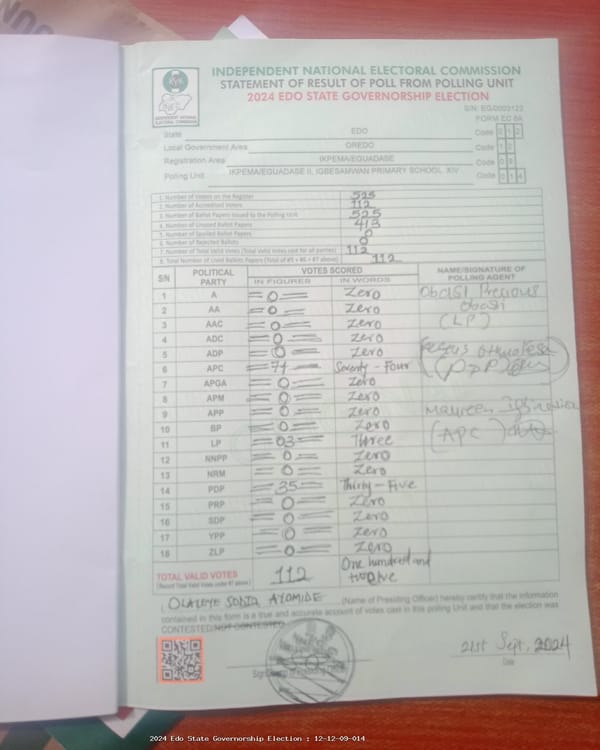 INDEPENDENT NATIONAL ELECTORAL COMMISSION
STATEMENT OF RESULT OF POLL FROM POLLING UNIT
2024 EDO STATE GOVERNORSHIP ELECTION
S/N: EG0003122
FORM EC 8A
State EDO Code 0 1 2
Local Government Area OREDO Code 1 2
Registration Area IKPEMA/EGUADASE Code 0 9
Polling Unit IKPEMA/EGUADASE II, IGBESAMWAN PRIMARY SCHOOL XIV Code 0 1 4
1. Number of Voters on the Register 525
2. Number of Accredited Voters 112
3. Number of Ballot Papers Issued to the Polling Unit 525
4. Number of Unused Ballot Papers 413
5. Number of Spoiled Ballot Papers 0
6. Number of Rejected Ballots 0
7. Number of Total Valid Votes (Total Valid Votes cast for all parties) 112
8. Total Number of Used Ballot Papers (Total of #5 + #6 + #7 above) 112
S/N POLITICAL PARTY VOTES SCORED NAME/SIGNATURE OF POLLING AGENT
IN FIGURES IN WORDS
1 A 0 Zero Obasi Precious
2 AA 0 Zero Obasi
3 AAC 0 Zero (LP)
4 ADC 0 Zero
5 ADP 0 Zero
6 APC 74 Seventy-Four (PDP)
7 APGA 0 Zero
8 APM 0 Zero
9 APP 0 Zero Maureen
10 BP 0 Zero
11 LP 03 Three (APC)
12 NNPP 0 Zero
13 NRM 0 Zero
14 PDP 35 Thirty-Five
15 PRP 0 Zero
16 SDP 0 Zero
17 YPP 0 Zero
18 ZLP 0 Zero
TOTAL VALID VOTES 112 One hundred and twelve
(Record Total Valid Votes under #7 above)
I, (Name of Presiding Officer) hereby certify that the information
contained in this form is a true and accurate account of votes cast in this polling Unit and that the election was
CONTESTED/NOT CONTESTED
21st Sept, 2024
Date
2024 Edo State Governorship Election : 12-12-09-014